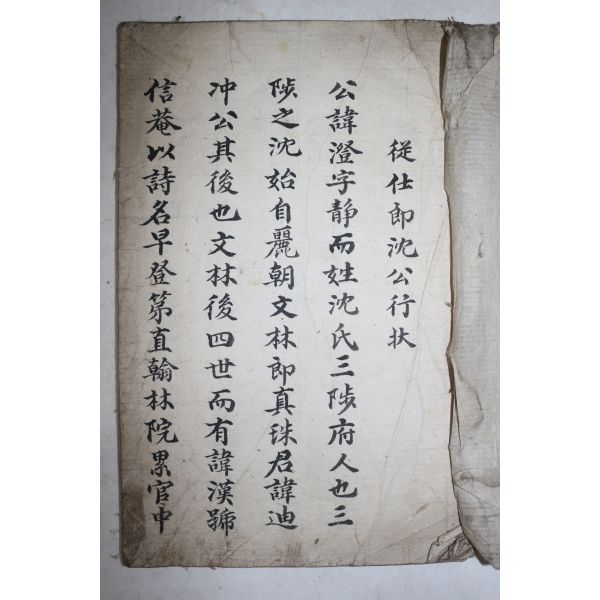 從仕郎沈公行狀
公諱澄字静而姓沈氏三陟府人也三
陟之沈始自麗朝文林郎真珠君諱迪
冲公其後也文林後四世而有諱漢號
信菴以詩名早登第直翰林院累官中